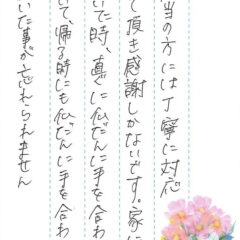 当の方には丁寧に対応
て頂き感謝しかないです。家に
いた時、真っ先に仏だんに手を合わ
いて、帰る時にも仏だんに手を合わ
いた事が忘れられません